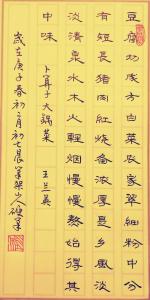 豆腐切成方白菜農家翠細粉中分
有短長猪肉紅燒香濃厚是乡風淡
淡清泉水木火輕烟慢慢熬始得其
中味
卜算子大鍋菜 王兰英
歲在庚子春初二月初七晨筆架山人硬筆